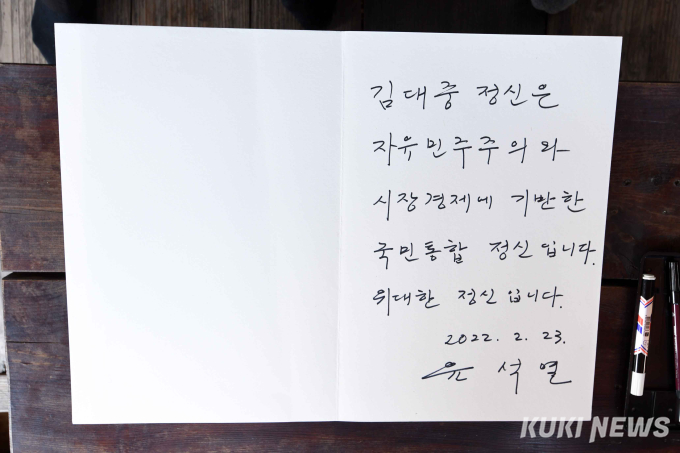 김대중 정신은
자유민주주의와
시장경제에 기반한
국민통합 정신입니다.
위대한 정신입니다.
2022. 2. 23.
윤석열
KUKI NEWS